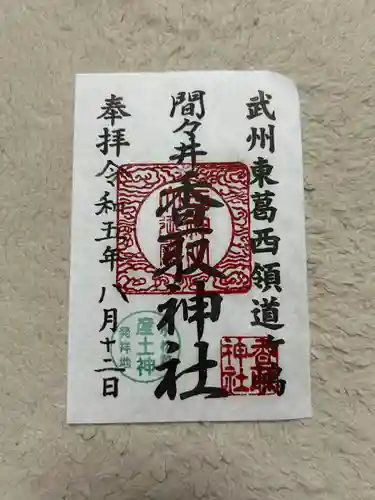 武州東葛西領道ヶ嶋
間々井香取神社
奉拝令和五年八月十二日
香取
神社
産土神
発祥地